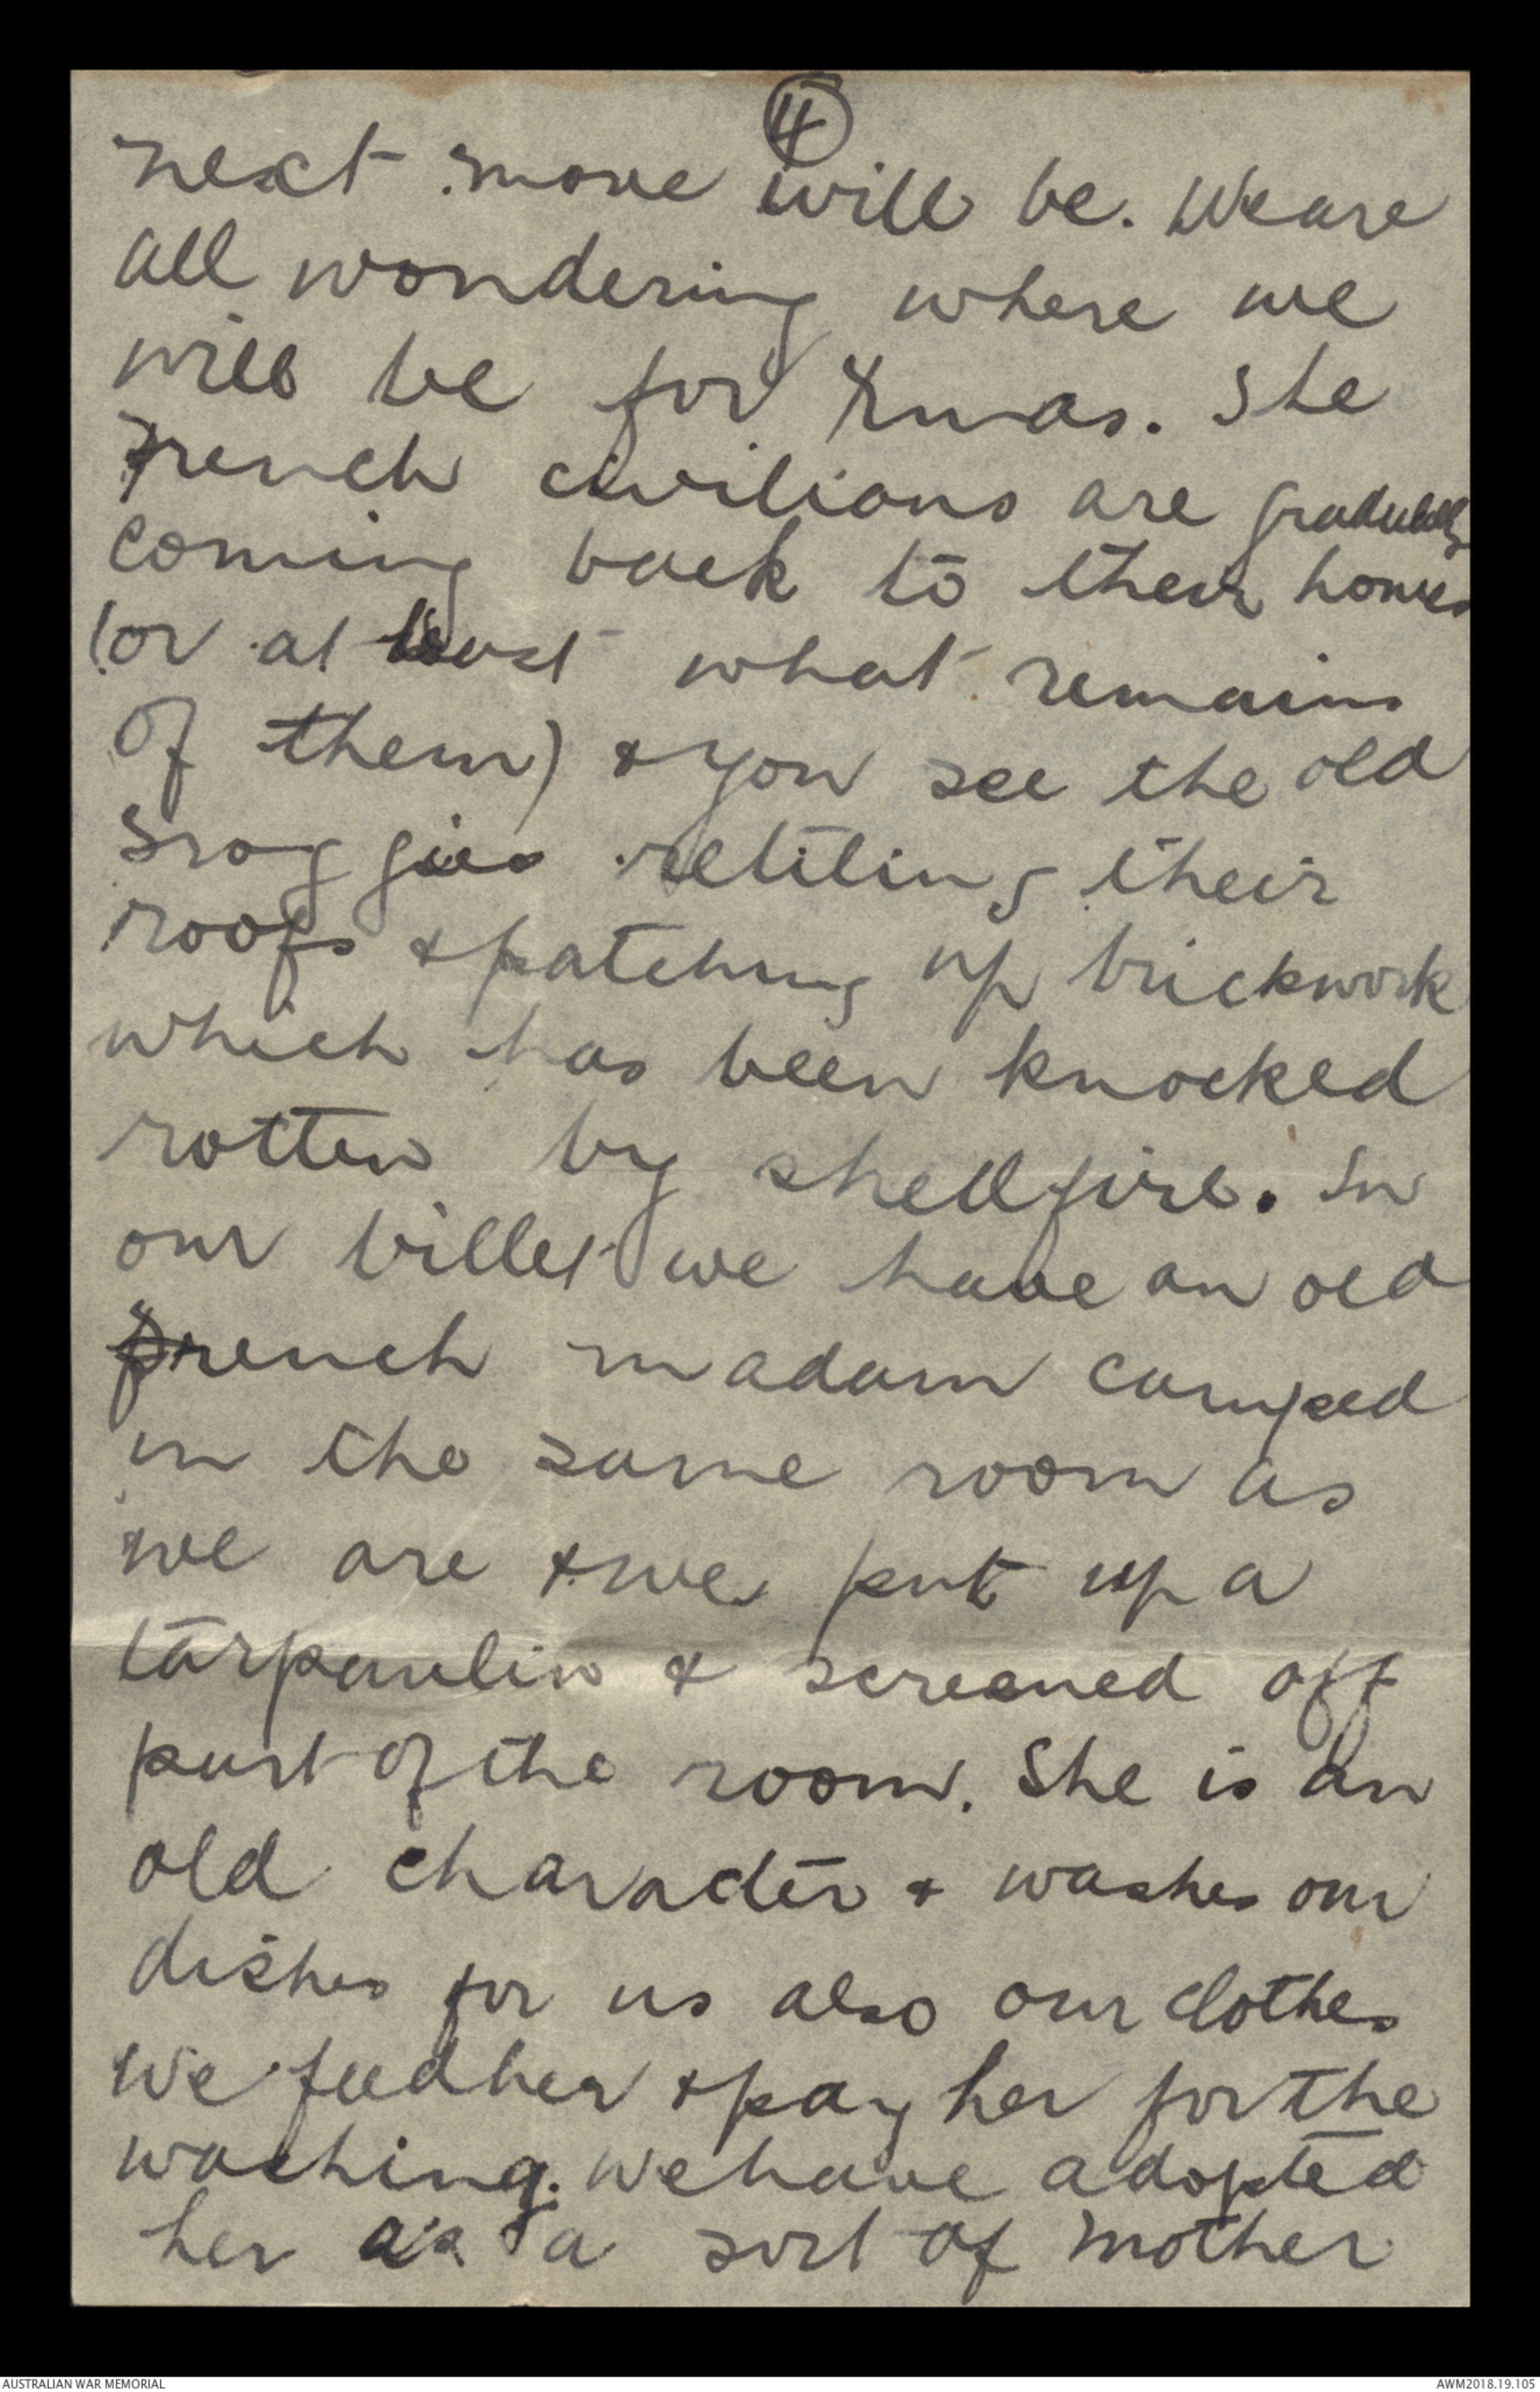 4
next move will be. We are
all wondering where we
will be for Xmas. The
French civilians are gradually
coming back to their homes
(or at least what remains
of them) & you see the old
Froggies retiling their
roofs & patching up brickwork
which has been knocked
rotten by shellfire. In
our billet we have an old
French madam camped
in the same room as
we are & we put up a
tarpaulin & screened off
part of the room. She is an
old character & washes our
dishes for us also our clothes
We feed her & pay her for the
washing. We have adopted
her as a sort of mother
AUSTRALIAN WAR MEMORIAL
AWM2018.19.105